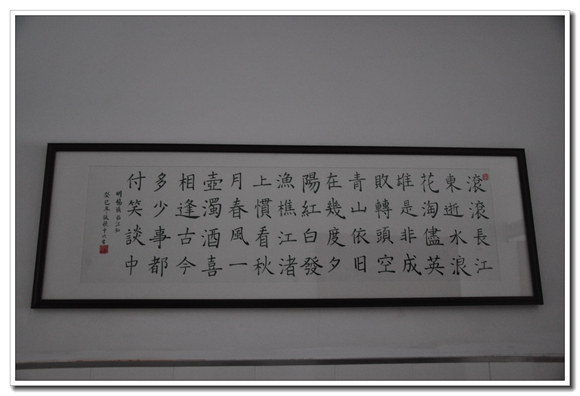 滾滾長江
東逝水浪
花淘儘英
雄是非成
敗轉頭空
青山依旧
在幾度夕
陽紅白發
漁樵江渚
上慣看秋
月春風一
壺濁酒喜
相逢古今
多少事都
付笑談中
明楊慎臨江仙
癸巳年